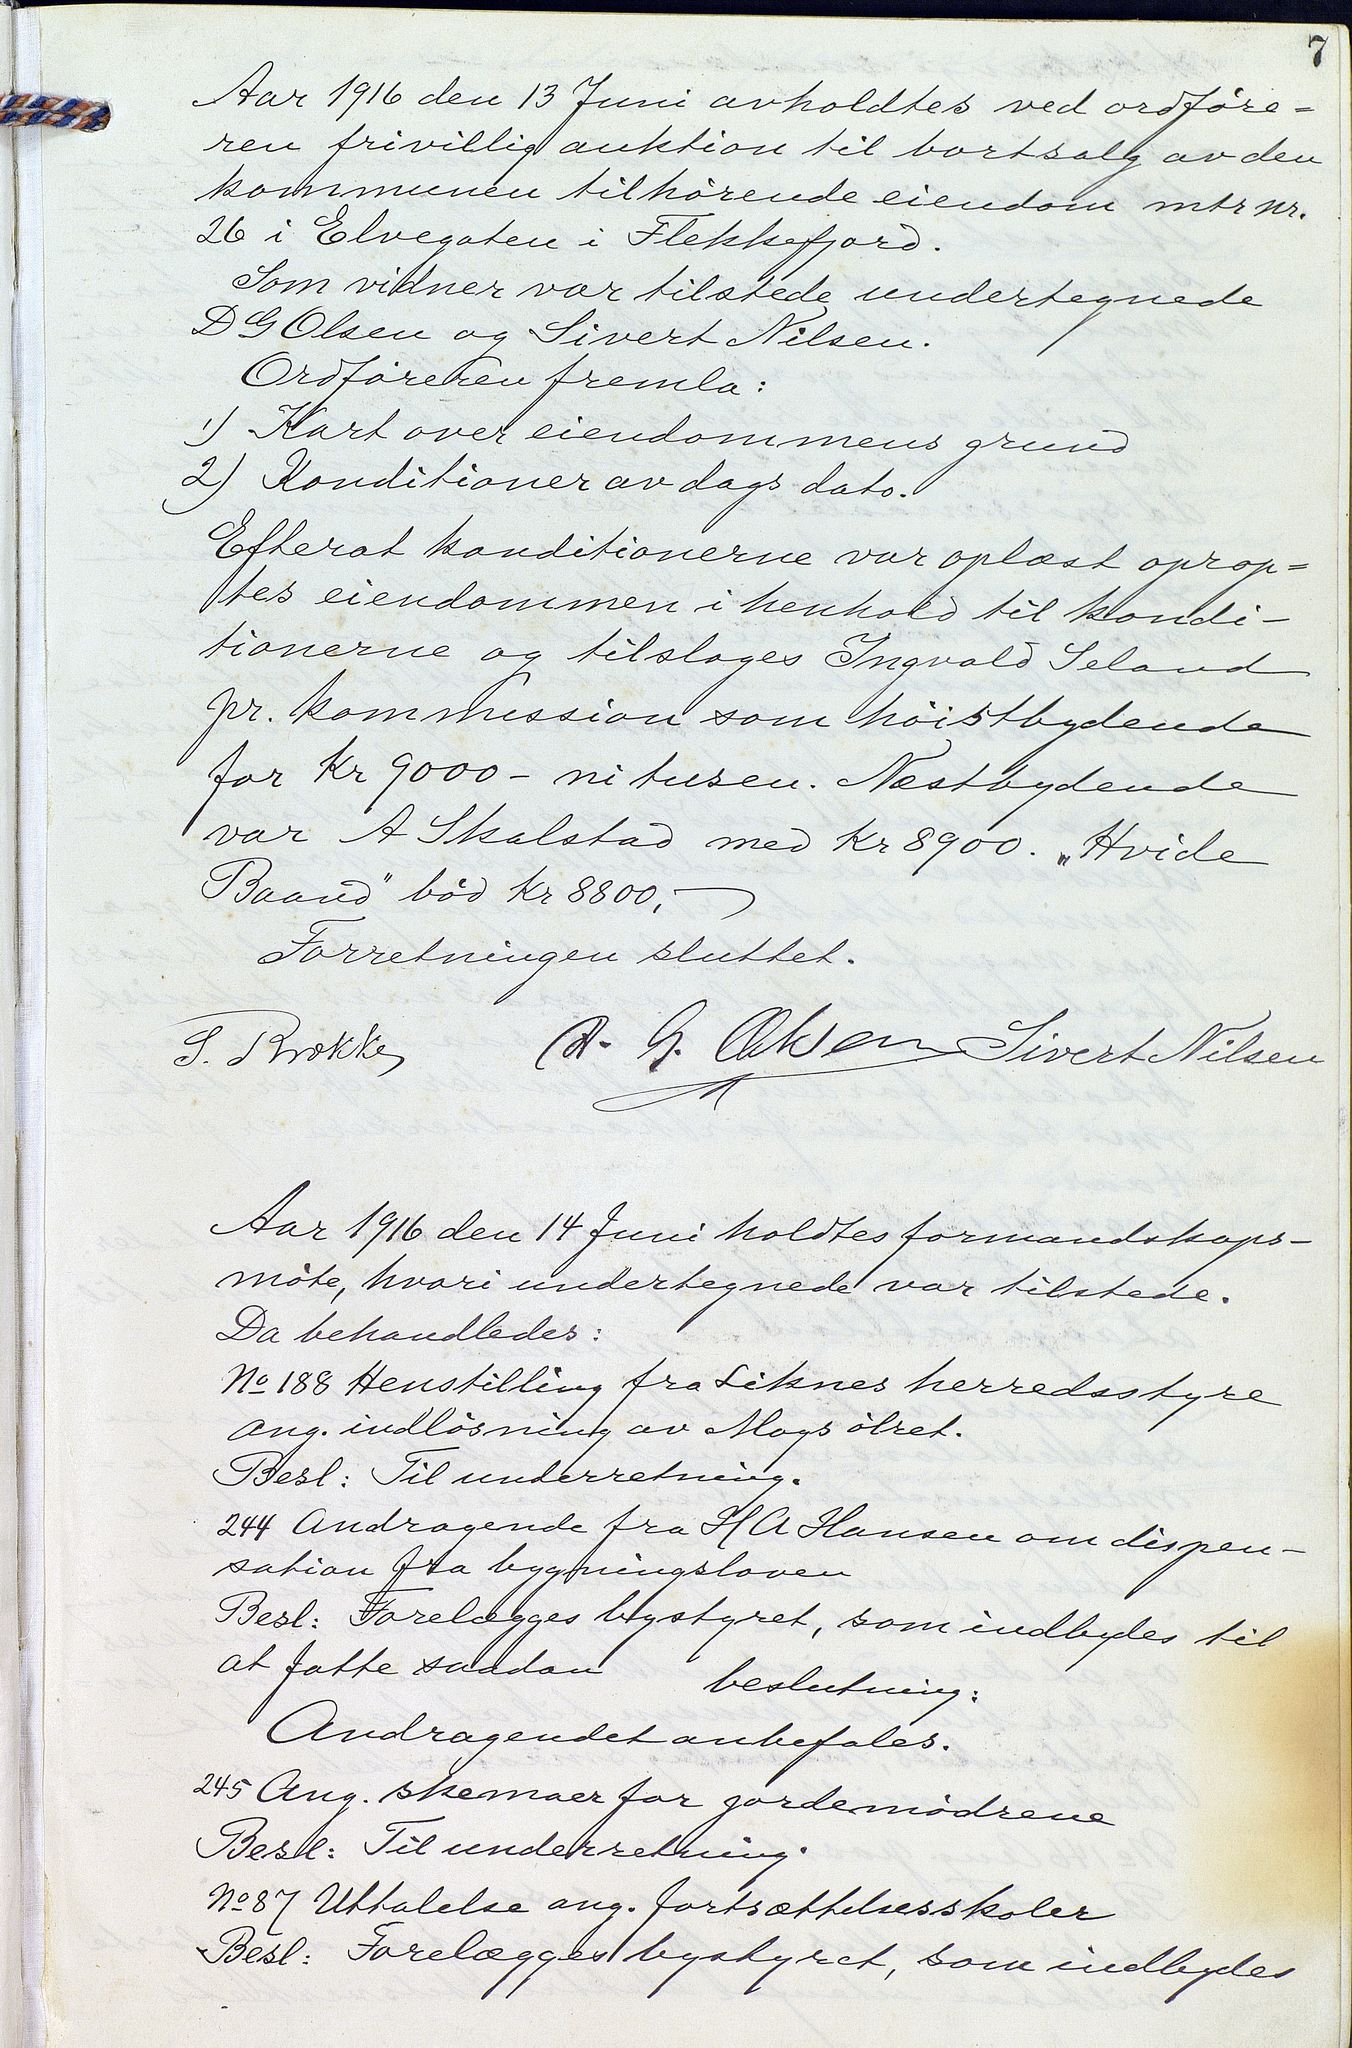 7
Aar 1916 den 13 Juni avholdtes ved ordføre=
ren frivillig auktion til bortsalg av den
kommunen tilhørende eiendom mtr nr.
26 i Elvegaten i Flekkefjord.
Som vidner var tilstede undertegnede
D G Olsen og Sivert Nilsen.
Ordføreren fremla:
1) Kart over eiendommens grund
2) Konditioner av dags dato.
Efterat konditionerne var oplæst oprop=
tes eiendommen i henhold til kondi-
tionerne og tilsloges Ingvald Seland
pr. kommission som høistbydende
for Kr 9000 - ni tusen. Næstbydende
var A Skalstad med Kr 8900. „Hvide
Baand" bød Kr 8800,-
Forretningen sluttet.
S. Brække D. G. Olsen Sivert Nilsen
Aar 1916 den 14 Juni holdtes formandskaps-
møte, hvori undertegnede var tilstede.
Da behandledes:
No 188 Henstilling fra Liknes herredsstyre
ang. indløsning av ølret.
Besl: Til underretning.
244 Andragende fra H A Hansen om dispen-
sation fra bygningsloven
Besl: Forelægges bystyret, som indbydes til
at fatte saadan beslutning:
Andragendet anbefales.
245 Ang. skemaer for jordemødrene
Besl: Til underretning.
No 87 Uttalelse ang. fortsættelsesskoler
Besl: Forelægges bystyret, som indbydes